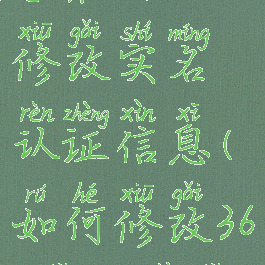 xiū gǎi shí míng
修改实名
rèn zhèng xìn xī
认证信息(
rú hé xiū gǎi
如何修改36